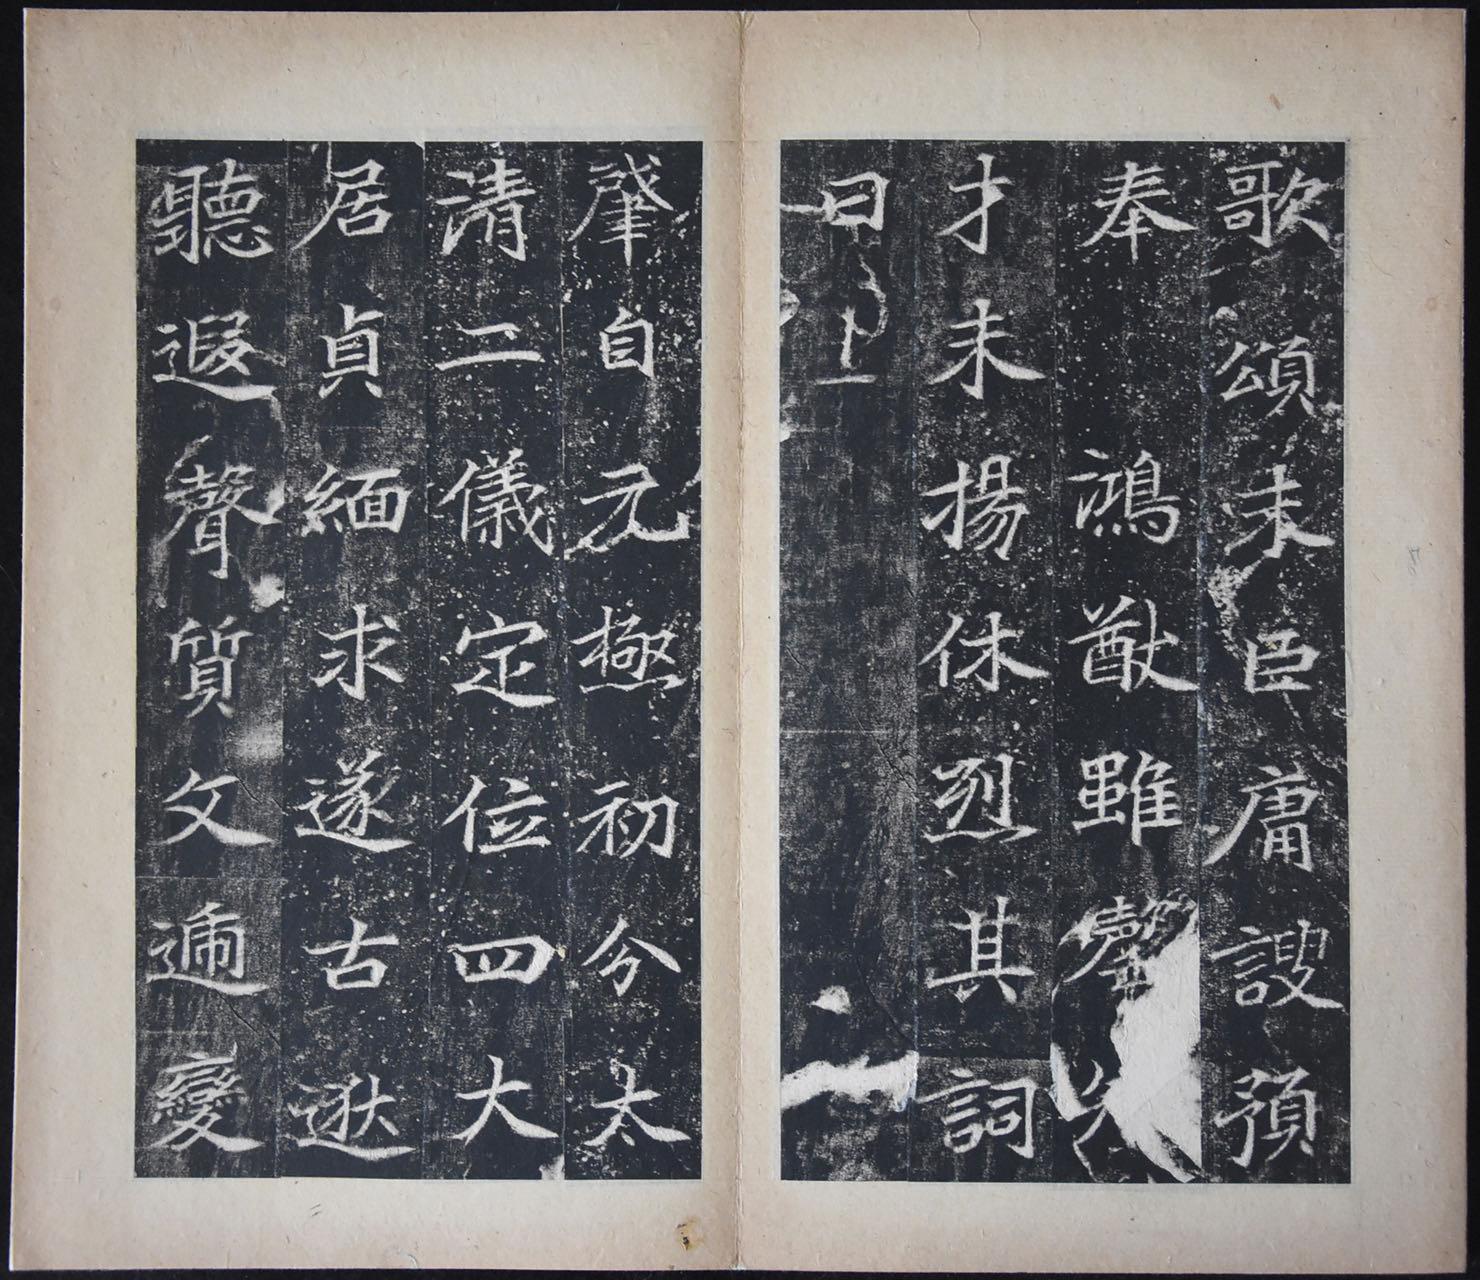 歌頌末臣庸謏預
奉鴻猷雖罄先
才未揚休烈其詞
曰
肇自元極初分太
清二儀定位四大
居貞緬求遂古逖
聽遐聲質文遞變